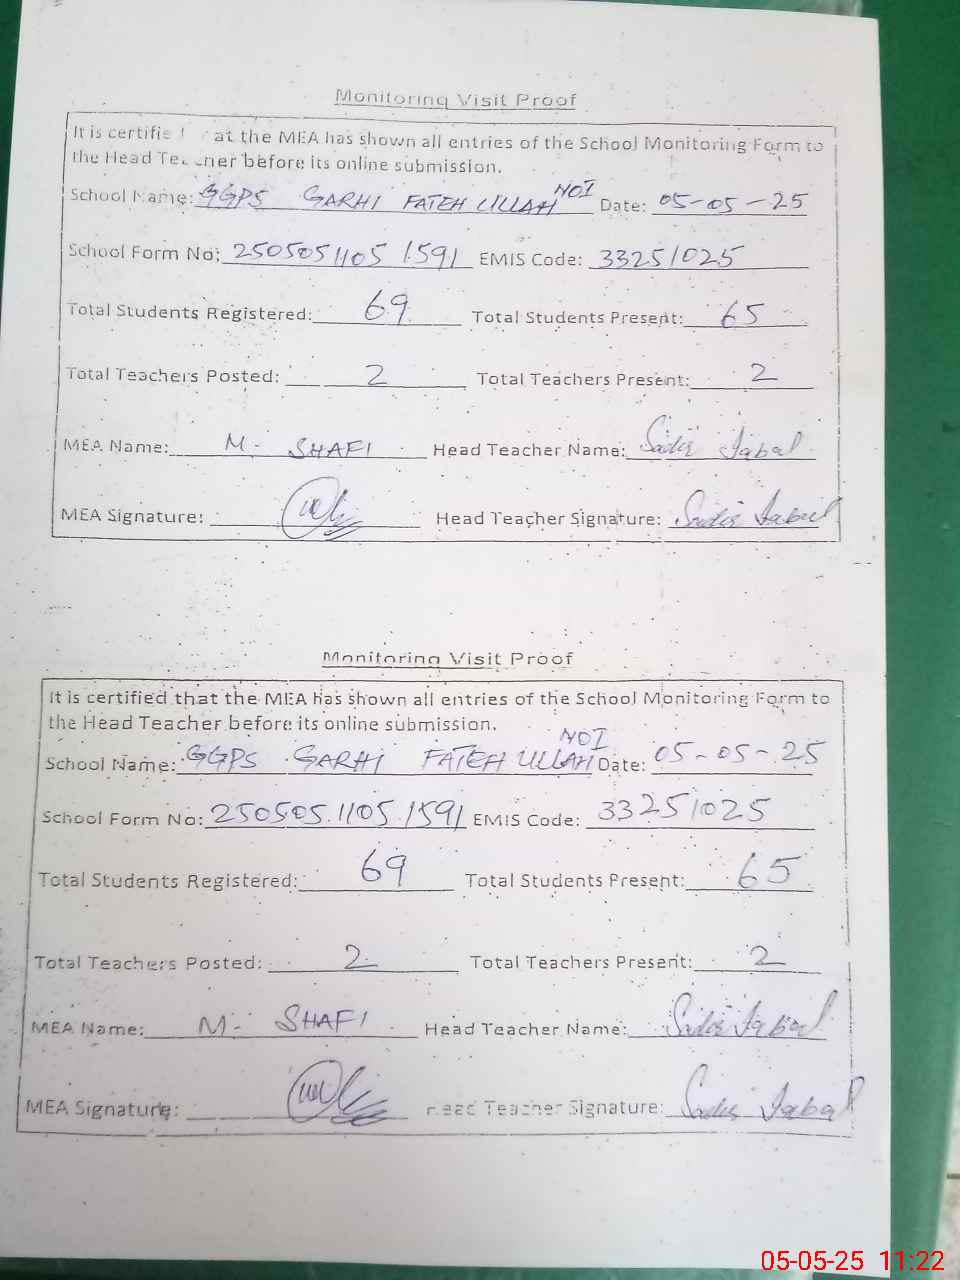 Monitoring Visit Proof
It is certifie at the MEA has shown all entries of the School Monitoring Form to
the Head Te ner before its online submission.
NOI
School Name: GGPS GARHI FATEH ULLAH Date: 05-05-25
School Form No: 2505051105 1591 EMIS Code: 33251025
Total Students Registered: 69 Total Students Present: 65
Total Teachers Posted: 2 Total Teachers Present: 2
MEA Name: M. SHAFI Head Teacher Name: Iqbal
MEA Signature: Head Teacher Signature: Iqbal
Monitoring Visit Proof
It is certified that the MEA has shown all entries of the School Monitoring Form to
the Head Teacher before its online submission.
NOI
School Name: GGPS GARHI FATEH ULLAH Date: 05-05-25
School Form No: 250505.1105.1591 EMIS Code: 33251025
Total Students Registered: 69 Total Students Present: 65
Total Teachers Posted: 2 Total Teachers Present: 2
MEA Name: M. SHAFI Head Teacher Name: Iqbal
MEA Signature: Head Teacher Signature: Iqbal
05-05-25 11:22